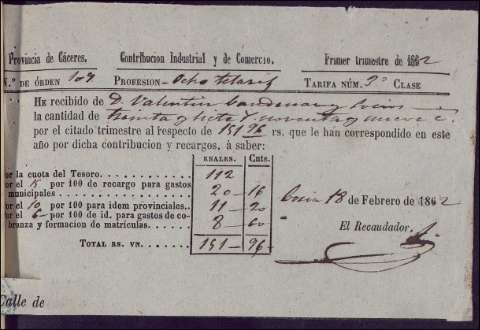 Provincia de Cáceres. Contribucion Industrial y de Comercio. Primer trimestre de 1862
N.º DE ÓRDEN 109 PROFESION Ocho telares TARIFA NÚM. 3ª CLASE
HE RECIBIDO de D. Valentin y Socios
la cantidad de treinta y siete r. noventa y nueve c.
por el citado trimestre al respecto de 151 96 rs. que le han correspondido en este
año por dicha contribucion y recargos, á saber:
REALES. Cnts.
Por la cuota del Tesoro. 112
Por el 18 por 100 de recargo para gastos
municipales 20 16
Por el 10 por 100 para idem provinciales.. 11 20
Por el 6 por 100 de id. para gastos de co-
branza y formacion de matrículas. 8 60
TOTAL RS. VN. 151 96
18 de Febrero de 1862
El Recaudador
Calle de